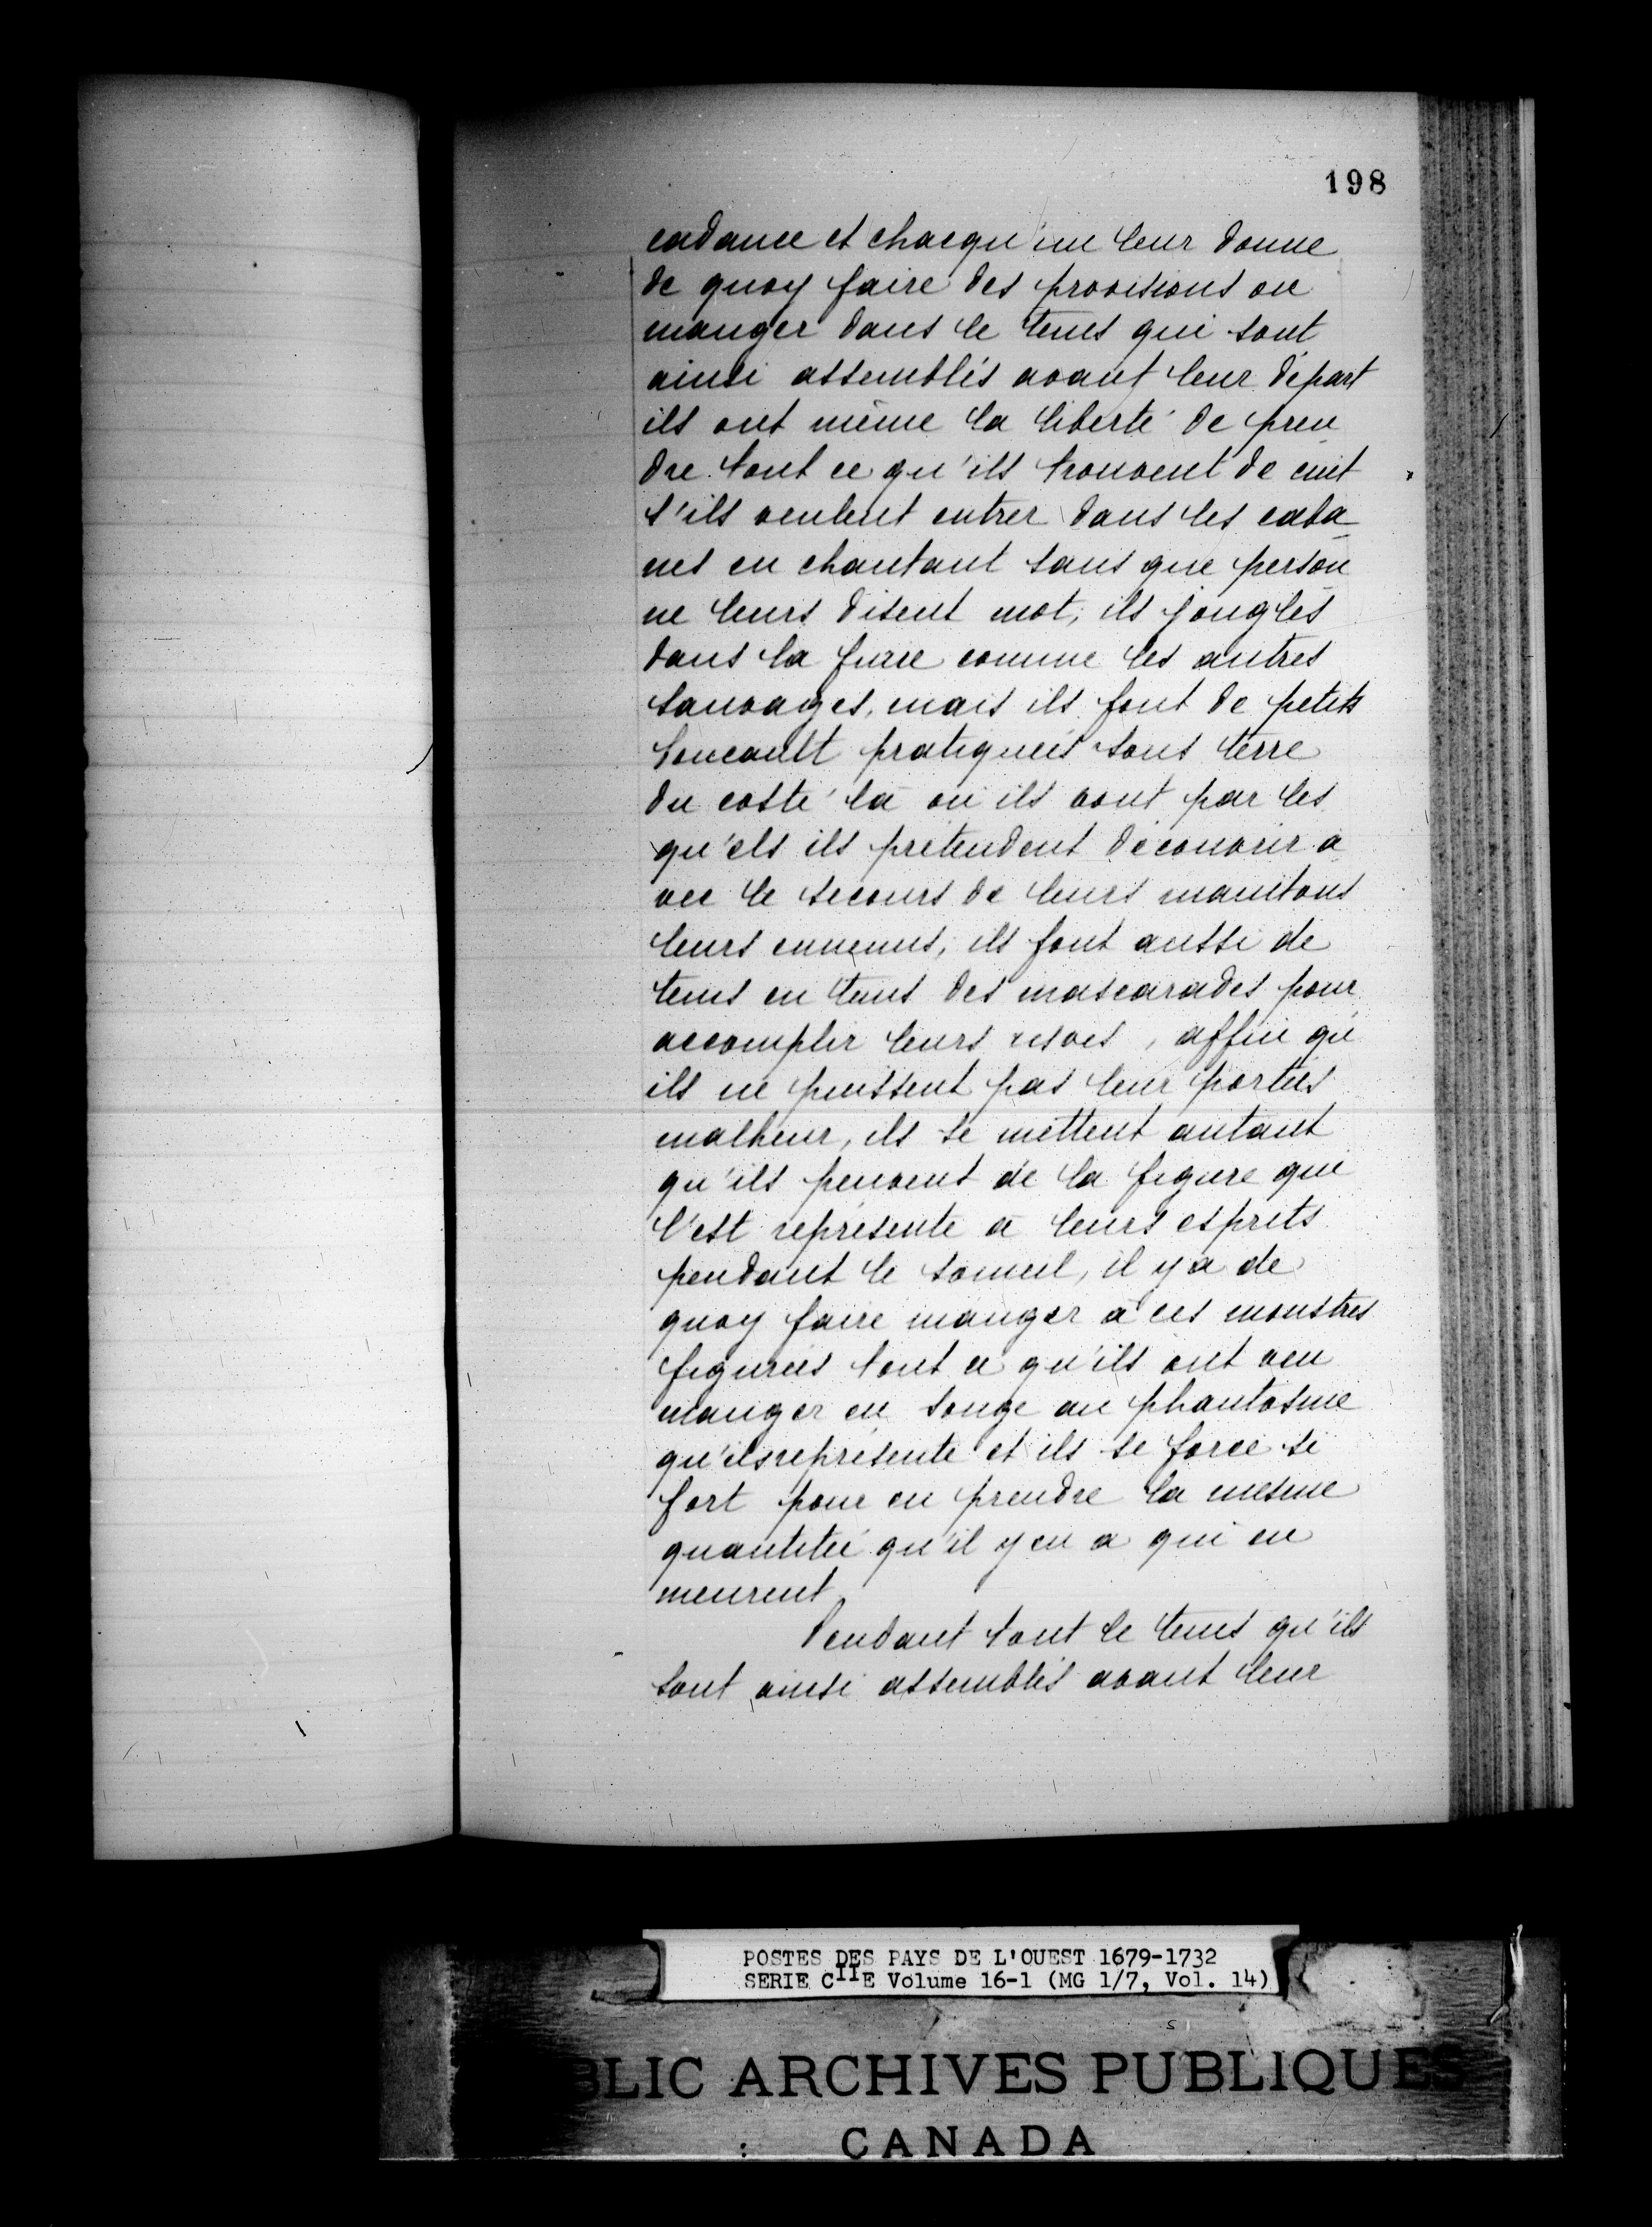 198
cadance et chacqu'une leur donne
de quoy faire des provisions ou
manger dans le tems qui sont
ainsi assemblés avant leur départ
ils ont même la liberté de pren
dre tout ce qu'ils trouvent de cuit
s'ils veulent entrer dans les caba
nes en chantant sans que person
ne leurs disent mot, ils jonglés
dans la furre comme les autres
sauvages, mais ils font de petits
pratiquéés sous terre
du costé là où ils vont par les
qu'els ils prétendent découvrir a
vec le secours de leurs manitous
leurs ennemis, ils font aussi de
tems en tems des mascarades pour
accomplir leurs resves, affin qu'
ils ne puissent pas leur portées
malheur, ils se mettent autant
qu'ils peuvent de la figure qui
s'est représente à leurs esprits
pendant le someil, il y a de
quoy faire manger à ces monstres
figurées tout ce qu'ils ont veu
manger en songe au phantosme
qu'ils représente et ils se force si
fort pour en prendre la mesme
quantitée qu'il y en a qui en
meurent
Pendant tout le tems qu'ils
sont ainsi assemblés avant leur
POSTES DES PAYS DE L'OUEST 1679-1732
SERIE CIIE Volume 16-1 (MG 1/7, Vol. 14)
BLIC ARCHIVES PUBLIQUES
CANADA